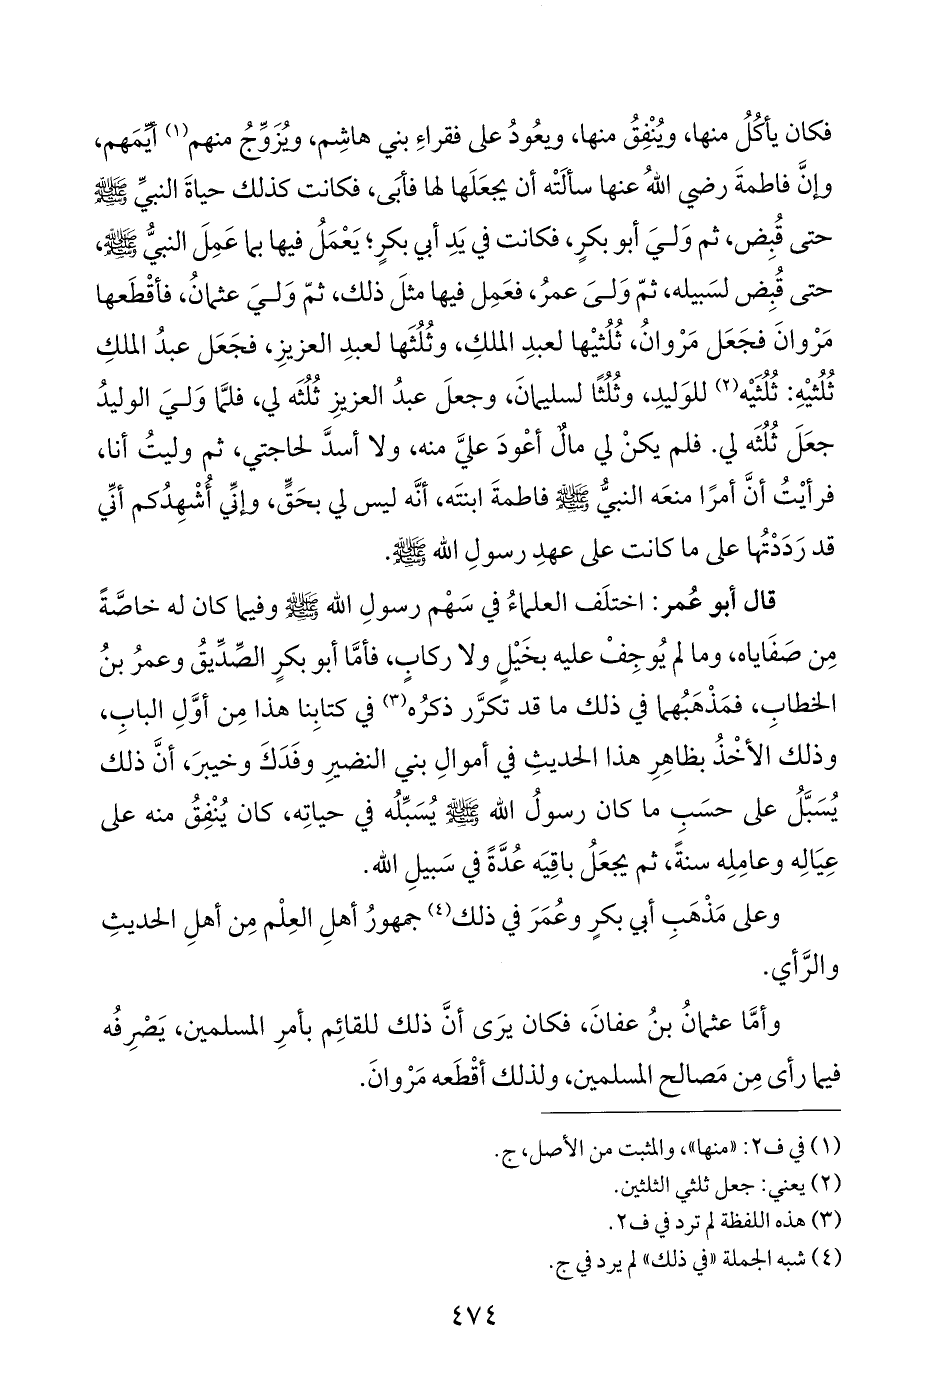 فكان يأكُلُ منها، ويُنْفِقُ منها، ويعُودُ على فقراءِ بني هاشِم، ويُزَوِّجُ منهم(١) أيِّمَهم،
وإنَّ فاطمةَ رضي اللهُ عنها سألَتْه أن يجعَلَها لها فأبَى، فكانت كذلك حياةَ النبيِّ ﷺ
حتى قُبِض، ثم وَليَ أبو بكرٍ، فكانت في يَدِ أبي بكرٍ؛ يَعْمَلُ فيها بما عَمِلَ النبيُّ ﷺ،
حتى قُبِض لسَبيله، ثمّ وَليَ عمرُ، فعَمِل فيها مثلَ ذلك، ثمّ وَليَ عثمانُ، فأقْطَعها
مَرْوانَ فجَعَل مَرْوانُ، ثُلُثيْها لعبدِ الملكِ، وثُلُثَها لعبدِ العزيزِ، فجَعَل عبدُ الملكِ
ثُلُثيْهِ: ثُلُثَيْه(٢) للوَليدِ، وثُلُثًا لسليمانَ، وجعلَ عبدُ العزيزِ ثُلُثَه لي، فلمَّا وَليَ الوليدُ
جعَلَ ثُلُثَه لي. فلم يكنْ لي مالٌ أعْودَ عليَّ منه، ولا أسدَّ لحاجتي، ثم وليتُ أنا،
فرأيْتُ أنَّ أمرًا منعَه النبيُّ ﷺ فاطمةَ ابنتَه، أنَّه ليس لي بحَقٍّ، وإنِّي أُشْهِدُكم أنِّي
قد رَدَدْتُها على ما كانت على عهدِ رسولِ الله ﷺ.
قال أبو عُمر: اختلَف العلماءُ في سَهْم رسولِ الله ﷺ وفيما كان له خاصَّةً
مِن صَفَاياه، وما لم يُوجِفْ عليه بخَيْلٍ ولا ركابٍ، فأمَّا أبو بكرٍ الصِّدِّيقُ وعمرُ بنُ
الخطابِ، فمَذْهَبُهما في ذلك ما قد تكرَّر ذكرُه(٣) في كتابِنا هذا مِن أوَّلِ البابِ،
وذلك الأخْذُ بظاهِرِ هذا الحديثِ في أموالِ بني النضيرِ وفَدَكَ وخيبرَ، أنَّ ذلك
يُسَبَّلُ على حسَبِ ما كان رسولُ الله ﷺ يُسَبِّلُه في حياتِه، كان يُنْفِقُ منه على
عِيَالِه وعامِلِه سنةً، ثم يجعَلُ باقِيَه عُدَّةً في سَبيلِ الله.
وعلى مَذْهَبِ أبي بكرٍ وعُمَرَ في ذلك(٤) جمهورُ أهلِ العِلْم مِن أهلِ الحديثِ
والرَّأي.
وأمَّا عثمانُ بنُ عفانَ، فكان يرَى أنَّ ذلك للقائِم بأمرِ المسلمين، يَصْرِفُه
فيما رأى مِن مَصالح المسلمين، ولذلك أقْطَعه مَرْوانَ.
(١) في ف٢: «منها»، والمثبت من الأصل، ج.
(٢) يعني: جعل ثلثي الثلثين.
(٣) هذه اللفظة لم ترد في ف٢.
(٤) شبه الجملة «في ذلك» لم يرد في ج.
٤٧٤